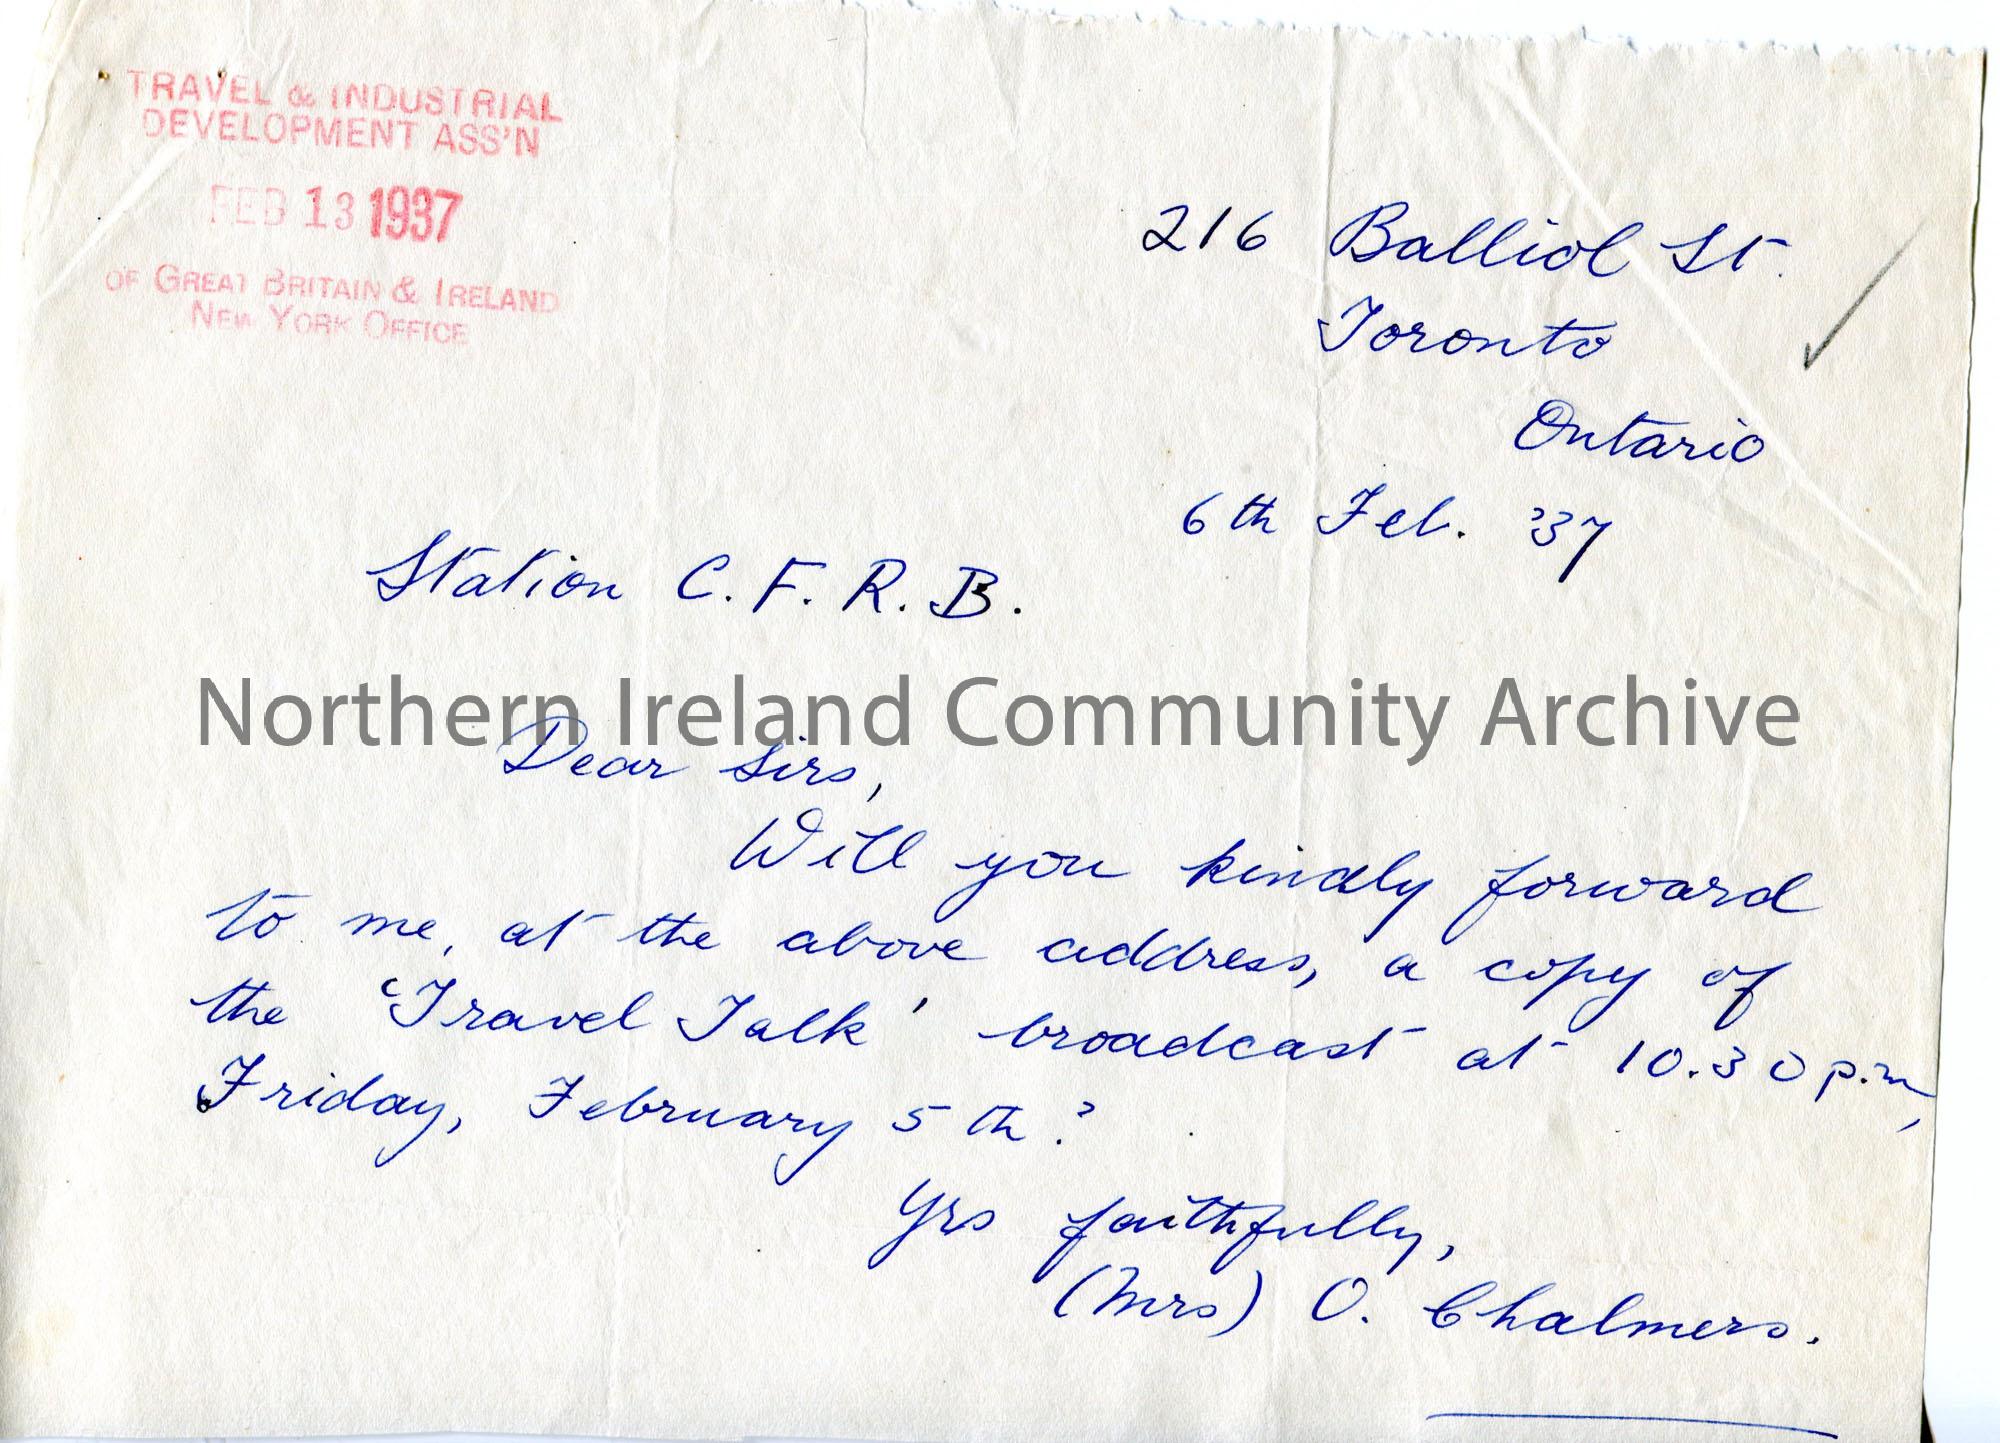 TRAVEL & INDUSTRIAL
DEVELOPMENT ASS'N
FEB 13 1937
OF GREAT BRITAIN & IRELAND
NEW YORK OFFICE
216 Balliol St.
Toronto
Ontario
6th Feb. '37
Station C. F. R. B.
Northern Ireland Community Archive
Dear Sirs,
Will you kindly forward
to me, at the above address, a copy of
the 'Travel Talk' broadcast at 10.30 p.m,
Friday, February 5th?
Yrs faithfully,
(Mrs) O. Chalmers.